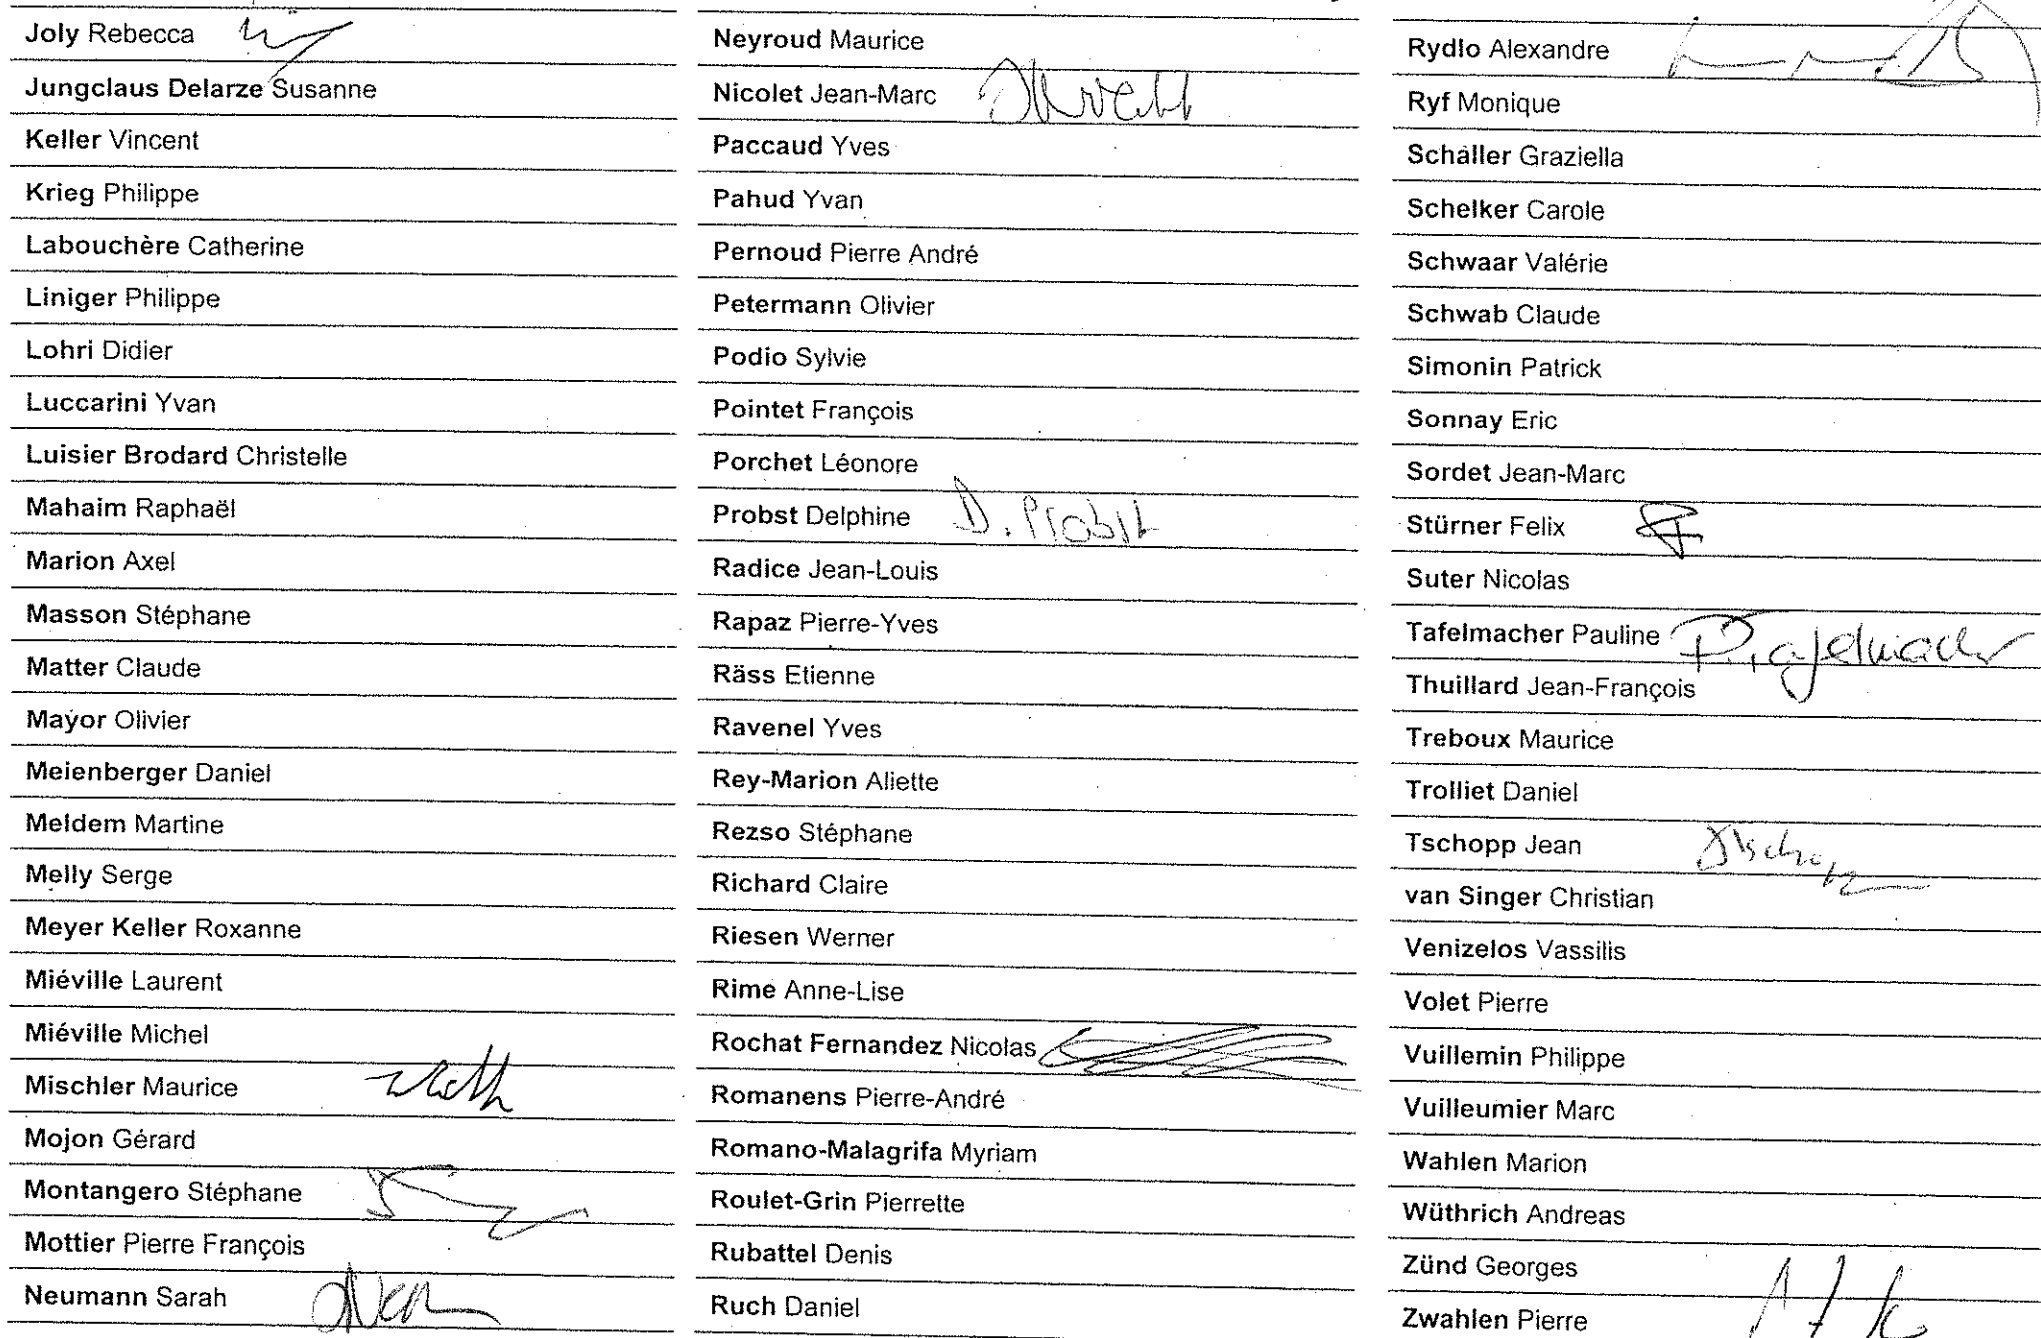 Joly Rebecca
Jungclaus Delarze Susanne
Keller Vincent
Krieg Philippe
Labouchère Catherine
Liniger Philippe
Lohri Didier
Luccarini Yvan
Luisier Brodard Christelle
Mahaim Raphaël
Marion Axel
Masson Stéphane
Matter Claude
Mayor Olivier
Meienberger Daniel
Meldem Martine
Melly Serge
Meyer Keller Roxanne
Miéville Laurent
Miéville Michel
Mischler Maurice
Mojon Gérard
Montangero Stéphane
Mottier Pierre François
Neumann Sarah
Neyroud Maurice
Nicolet Jean-Marc
Paccaud Yves
Pahud Yvan
Pernoud Pierre André
Petermann Olivier
Podio Sylvie
Pointet François
Porchet Léonore
Probst Delphine D. Probst
Radice Jean-Louis
Rapaz Pierre-Yves
Räss Etienne
Ravenel Yves
Rey-Marion Aliette
Rezso Stéphane
Richard Claire
Riesen Werner
Rime Anne-Lise
Rochat Fernandez Nicolas
Romanens Pierre-André
Romano-Malagrifa Myriam
Roulet-Grin Pierrette
Rubattel Denis
Ruch Daniel
Rydlo Alexandre
Ryf Monique
Schaller Graziella
Schelker Carole
Schwaar Valérie
Schwab Claude
Simonin Patrick
Sonnay Eric
Sordet Jean-Marc
Stürner Felix
Suter Nicolas
Tafelmacher Pauline P. Tafelmacher
Thuillard Jean-François
Treboux Maurice
Trolliet Daniel
Tschopp Jean JTschopp
van Singer Christian
Venizelos Vassilis
Volet Pierre
Vuillemin Philippe
Vuilleumier Marc
Wahlen Marion
Wüthrich Andreas
Zünd Georges
Zwahlen Pierre